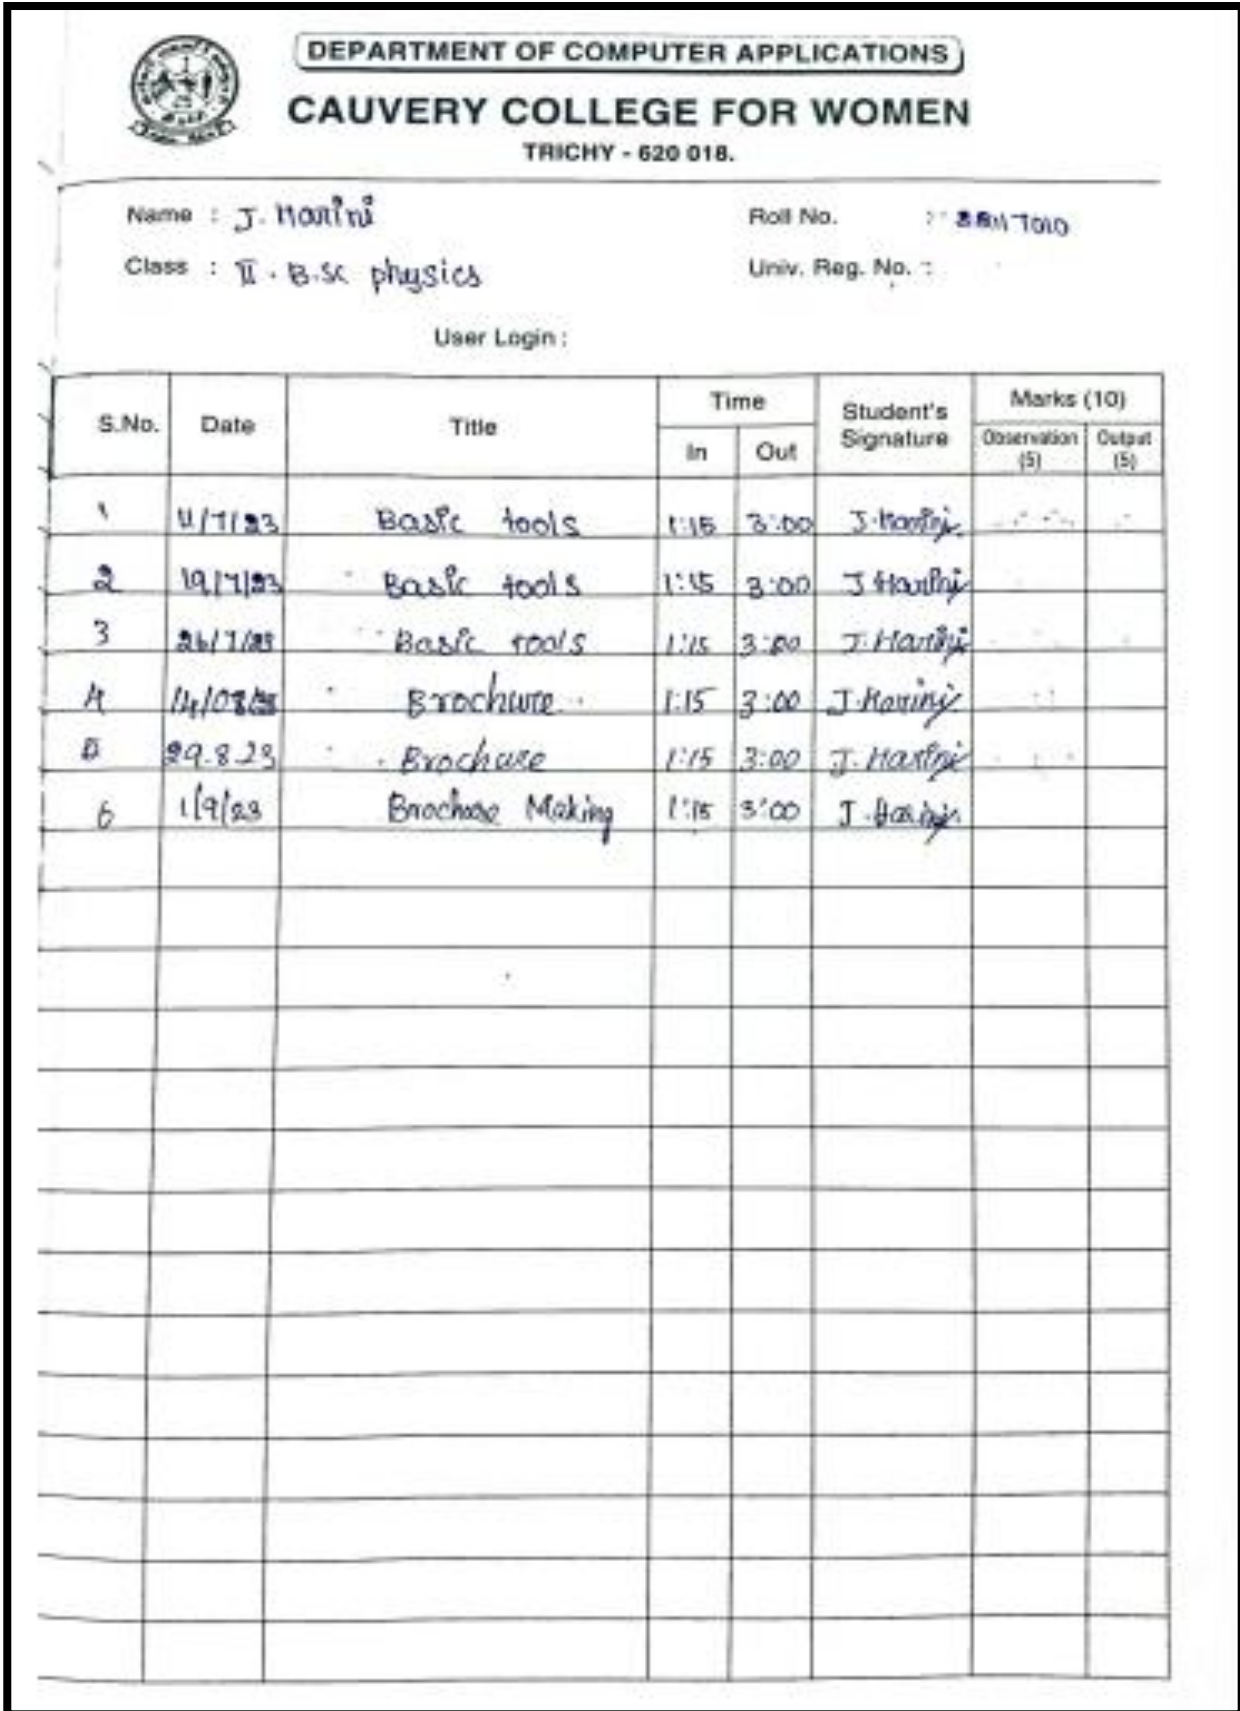 DEPARTMENT OF COMPUTER APPLICATIONS
CAUVERY COLLEGE FOR WOMEN
TRICHY - 620 018.
Name : J. Harini Roll No. :
Class : II . B.sc physics Univ. Reg. No. :
User Login :
S.No. Date Title Time Student's Signature Marks (10)
In Out Observation (5) Output (5)
1 11/7/23 Basic tools 1:15 3:00 J. Harini
2 19/7/23 Basic tools 1:15 3:00 J Harini
3 26/7/23 Basic tools 1:15 3:00 J. Harini
4 14/08/23 Brochure 1:15 3:00 J. Harini
5 29.8.23 Brochure 1:15 3:00 J. Harini
6 1/9/23 Brochure Making 1:15 3:00 J. Harini